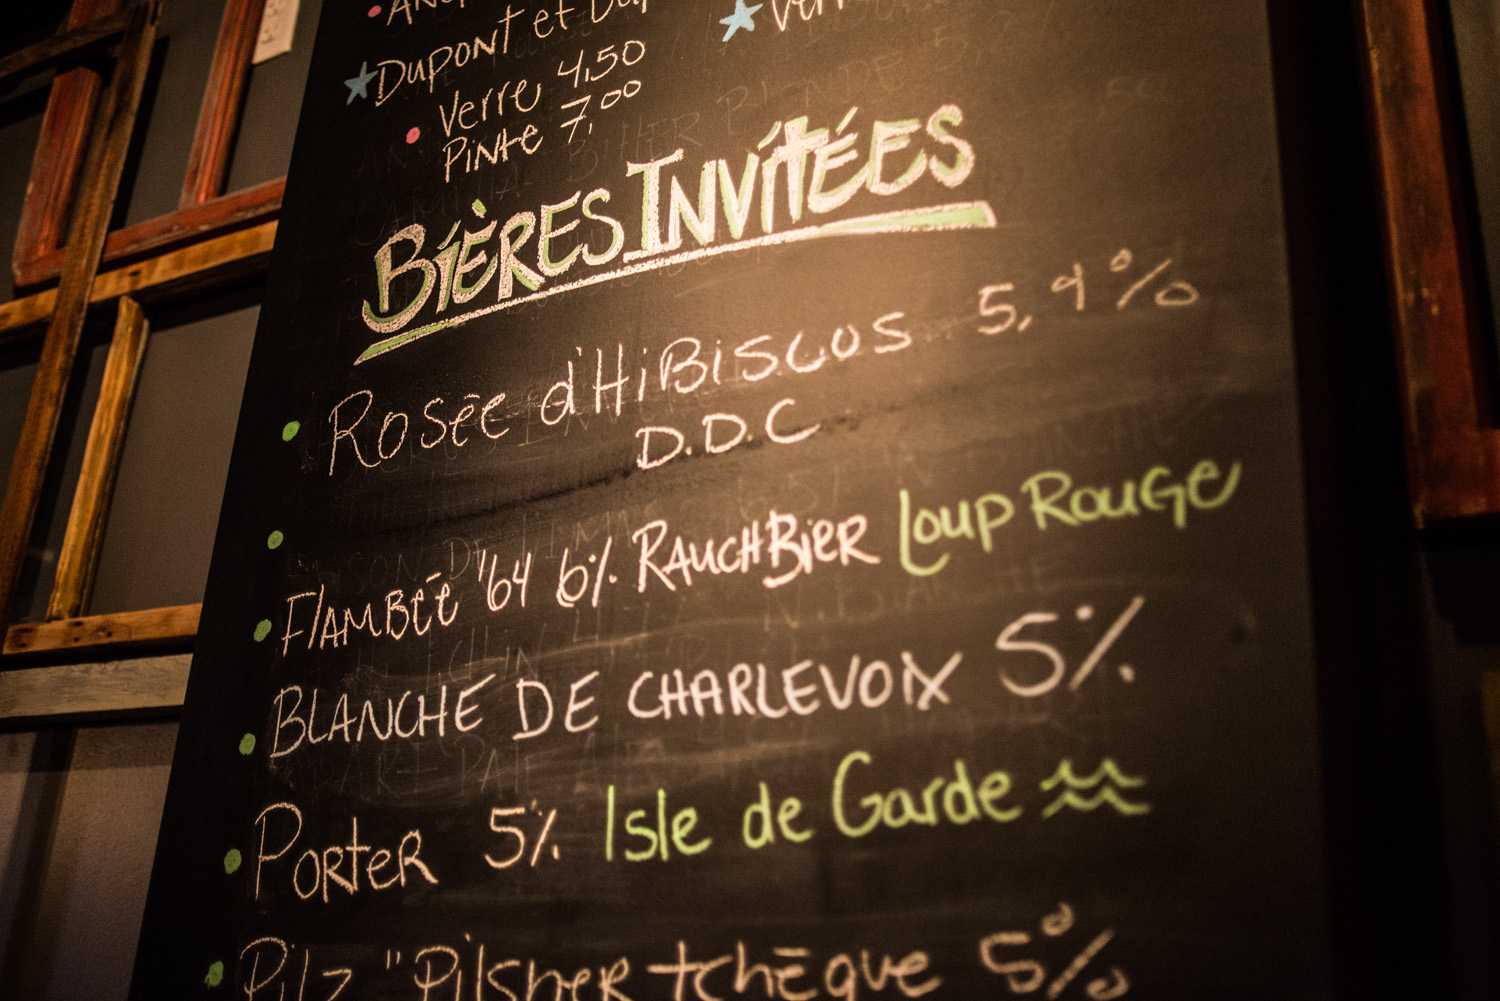 Dupont et
Verre 4,50
Pinte 7,00
BIÈRES INVITÉES
Rosée d'HiBiscus 5,9%
D.D.C
FlAMBéé '64 6% RAUCHBiER Loup Rouge
BLANCHE DE CHARLEVOIX 5%
PORTER 5% Isle de Garde
Pilz "Pilsner tchèque 5%